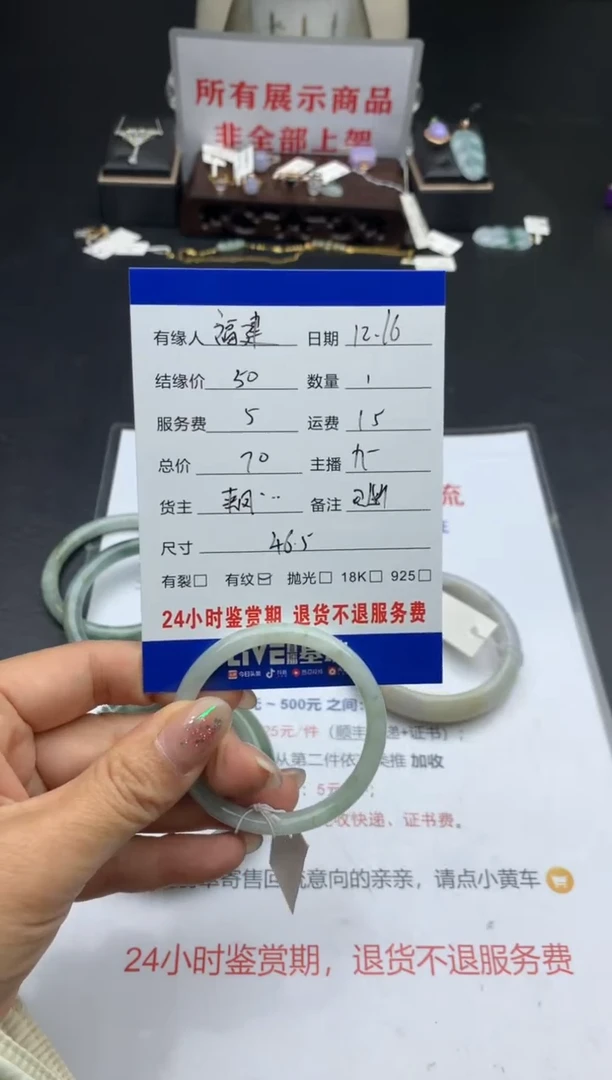 所有展示商品
非全部上架
有缘人 福建 日期 12-16
结缘价 50 数量 1
服务费 5 运费 15
总价 70 主播 九一
货主 备注
尺寸 46.5
有裂□ 有纹☑ 抛光□ 18K□ 925□
24小时鉴赏期 退货不退服务费
LIVE
今日头条 抖音
流
~500元 之间:
25元/件（顺丰 递+证书）;
从第二件依 类推 加收
; 5元
收快递、证书费。
寄售回流意向的亲亲，请点小黄车
24小时鉴赏期，退货不退服务费